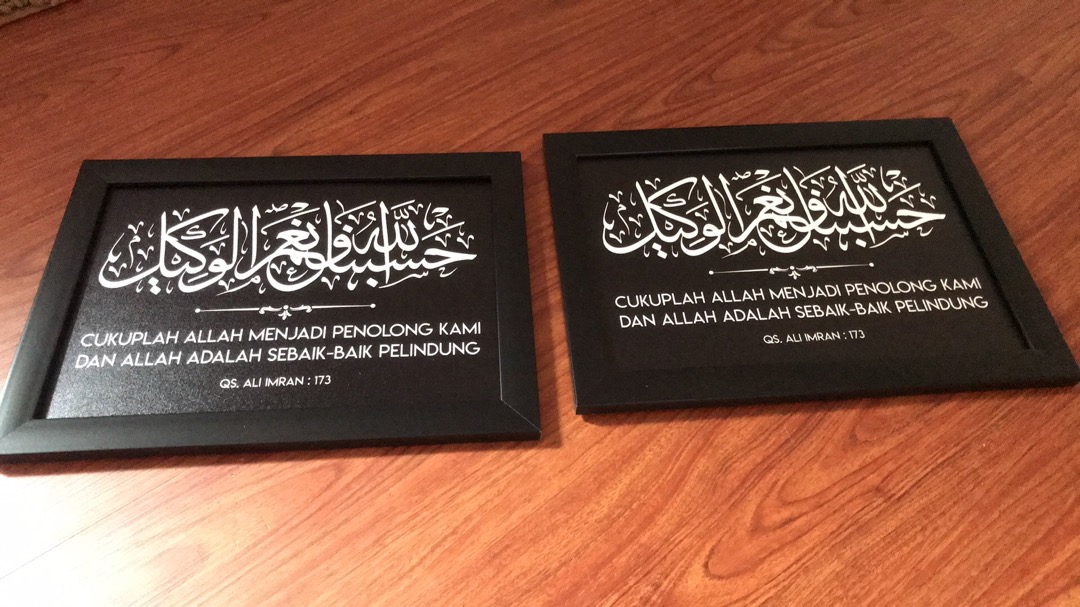 حسبنا الله ونعم الوكيل
CUKUPLAH ALLAH MENJADI PENOLONG KAMI
DAN ALLAH ADALAH SEBAIK-BAIK PELINDUNG
QS. ALI IMRAN : 173
حسبنا الله ونعم الوكيل
CUKUPLAH ALLAH MENJADI PENOLONG KAMI
DAN ALLAH ADALAH SEBAIK-BAIK PELINDUNG
QS. ALI IMRAN : 173